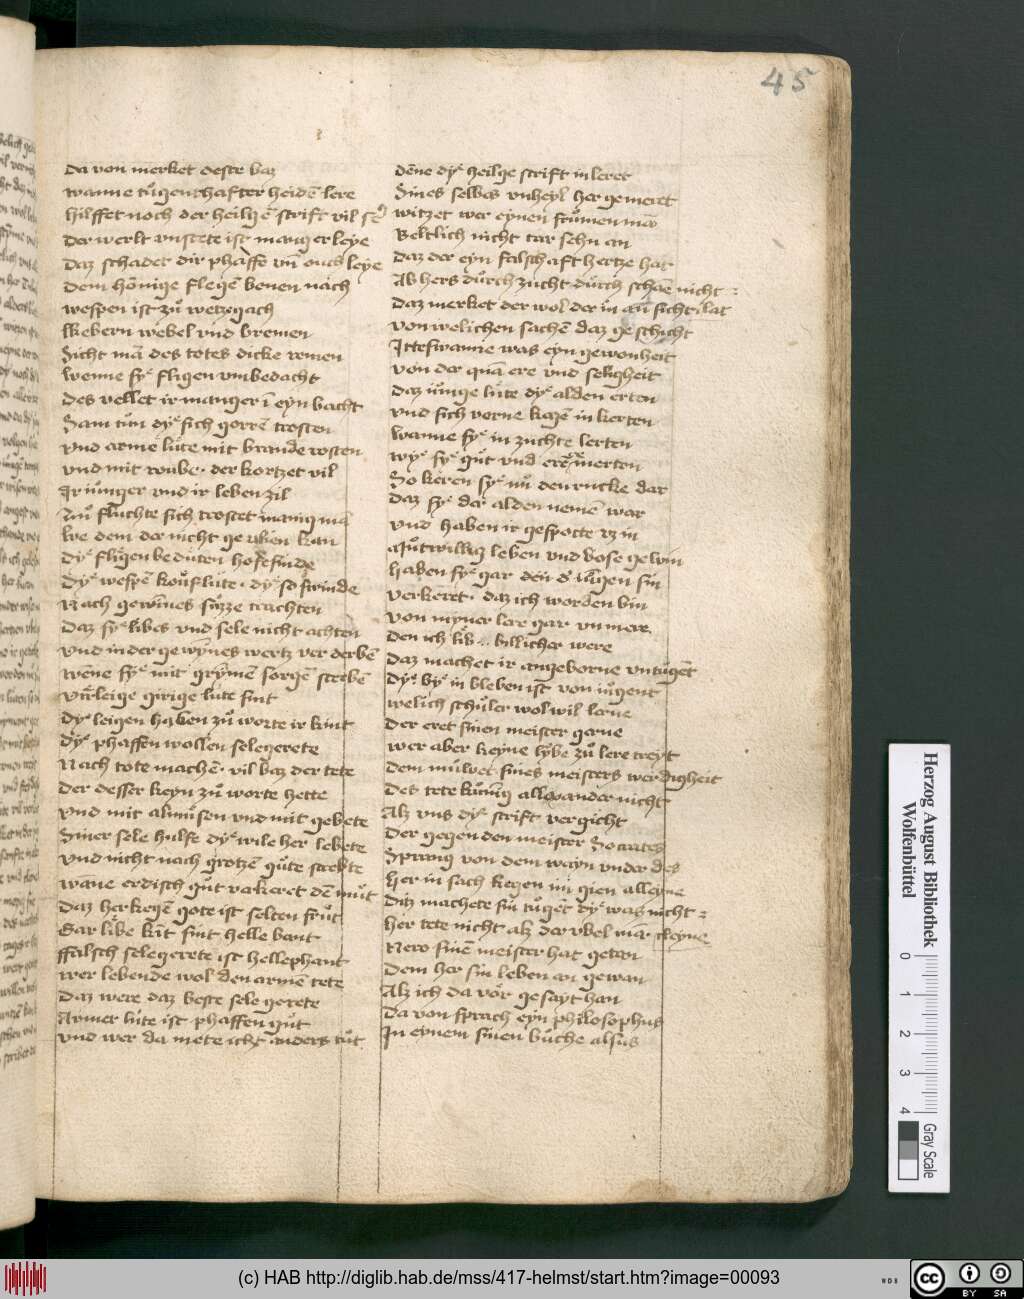 45
da von merket deste baz
wanne tůgenthafter heidē lere
hilffet noch der heilgē scrift vil sē
der werlt vnstete ist manger leye
Daz schadet dir phaffe vn̄ ouch leye
Dem hōnige flegē benen nach
wespen ist zů wetzegach
kebern webel vnd bremen
Sicht mā des totes dicke remen
wenne syͤ fligen vmbedacht
des vellet ir manger ī eyn bacht
Sam tůn dyͤ sich gerrē trosten
vnd arme lůte mit brande rosten
vnd mit roube · der kortzet vil
Ir iůnger vnd ir leben zil
Nů fluchte sich trostet manig mā
we dem der nicht ge kan
dyͤ fligen bedůten hofesinde
dyͤ wespē koufluͤte · dyͤ so swinde
Nach gewīnes suͦzze trachten
Daz syͤ libes vnd sele nicht achten
vnd in der gewȳnes wertz vor derbē
wēne syͤ mit grȳmē sorgē sterbē
vrleige girige luͤte sint
dyͤ leigen haben zů worte ir kint
dyͤ phaffen wollen selegerete
Nach tote machē · vil baz der tete
der desser keyn zů worte hette
vnd mit almůsen vnd mit gebete
Siner sele hulfe dyͤ wile her lebete
vnd nicht nach grotzē gůte strebte
wāne erdisch gůt vorkeret dē můt
Daz her kegē gote ist selten frůt
Gar libe kīt sint helle bant
ffalsch selegerete ist hellephant
wer lebende wol den armē tete
Daz were daz beste sele gerete
Armer luͤte ist phaffen gůt
vnd wer da mete icht anders tůt
dēne dyͤ heilge scrift in leret
Sines selbes vnheyl her gemeret
witzet wer eynen frůmen mā
weltlich nicht tar sehn an
Daz der eyn falschaft hertze hat
Ab hers durch zucht durch schae nicht =
Daz merket der wol der in an sichtikat
von welichen sachē daz geschicht
Itteswanne was eyn gewonheit
von der quā ere vnd selikgheit
daz iůnge luͤte dyͤ alden erten
vnd sich verne kegē in kerten
wanne syͤ in zuchte lerten
wyͤ syͤ gůt vnd ere merten
So keren syͤ nů den rucke dar
Daz syͤ der alden nemē war
vnd haben ir gespotte vz in
Můtwillig leben vnd bose gewin
haben syͤ gar den iůngen sin
verkeret · daz ich worden bin
von myner lere gar vnmere
Den ich lib billicher were
Daz machet ir angeborne vntůgēt
dyͤ byͤ in bleben ist von iůgent
welich schůler wol wil lerne
der eret sinen meister gerne
wer aber keyne lybe zů lere treyt
dem můwet sines meisters werdigheit
des tete kůnig allexander nicht
Alz vns dyͤ scrift vergicht
der gegen den meister Socrates
Sprang von dem wayn vnder des
her in sach kegen im gien alleyne
Ditz machete sin tůgēt dyͤ was nicht =
her tete nicht alz der vbel mā cleyne
Nero sinē meister hat getan
dem her sin leben an gewan
Alz ich da vor gesayt han
da von sprach eyn philosophus
In eynem sinen buche alsus
Herzog August Bibliothek
Wolfenbüttel
0 1 2 3 4
Gray Scale
(c) HAB http://diglib.hab.de/mss/417-helmst/start.htm?image=00093
WDB
cc BY SA